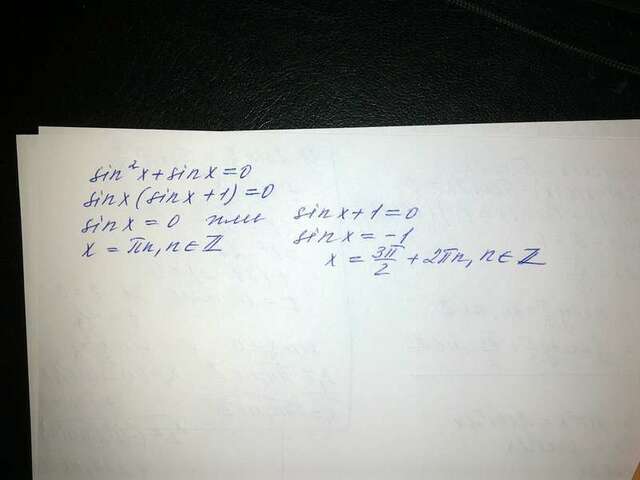 sin²x + sinx = 0
sinx(sinx + 1) = 0
sinx = 0 или sinx + 1 = 0
x = πn, n ∈ ℤ sinx = -1
x = 3π/2 + 2πn, n ∈ ℤ